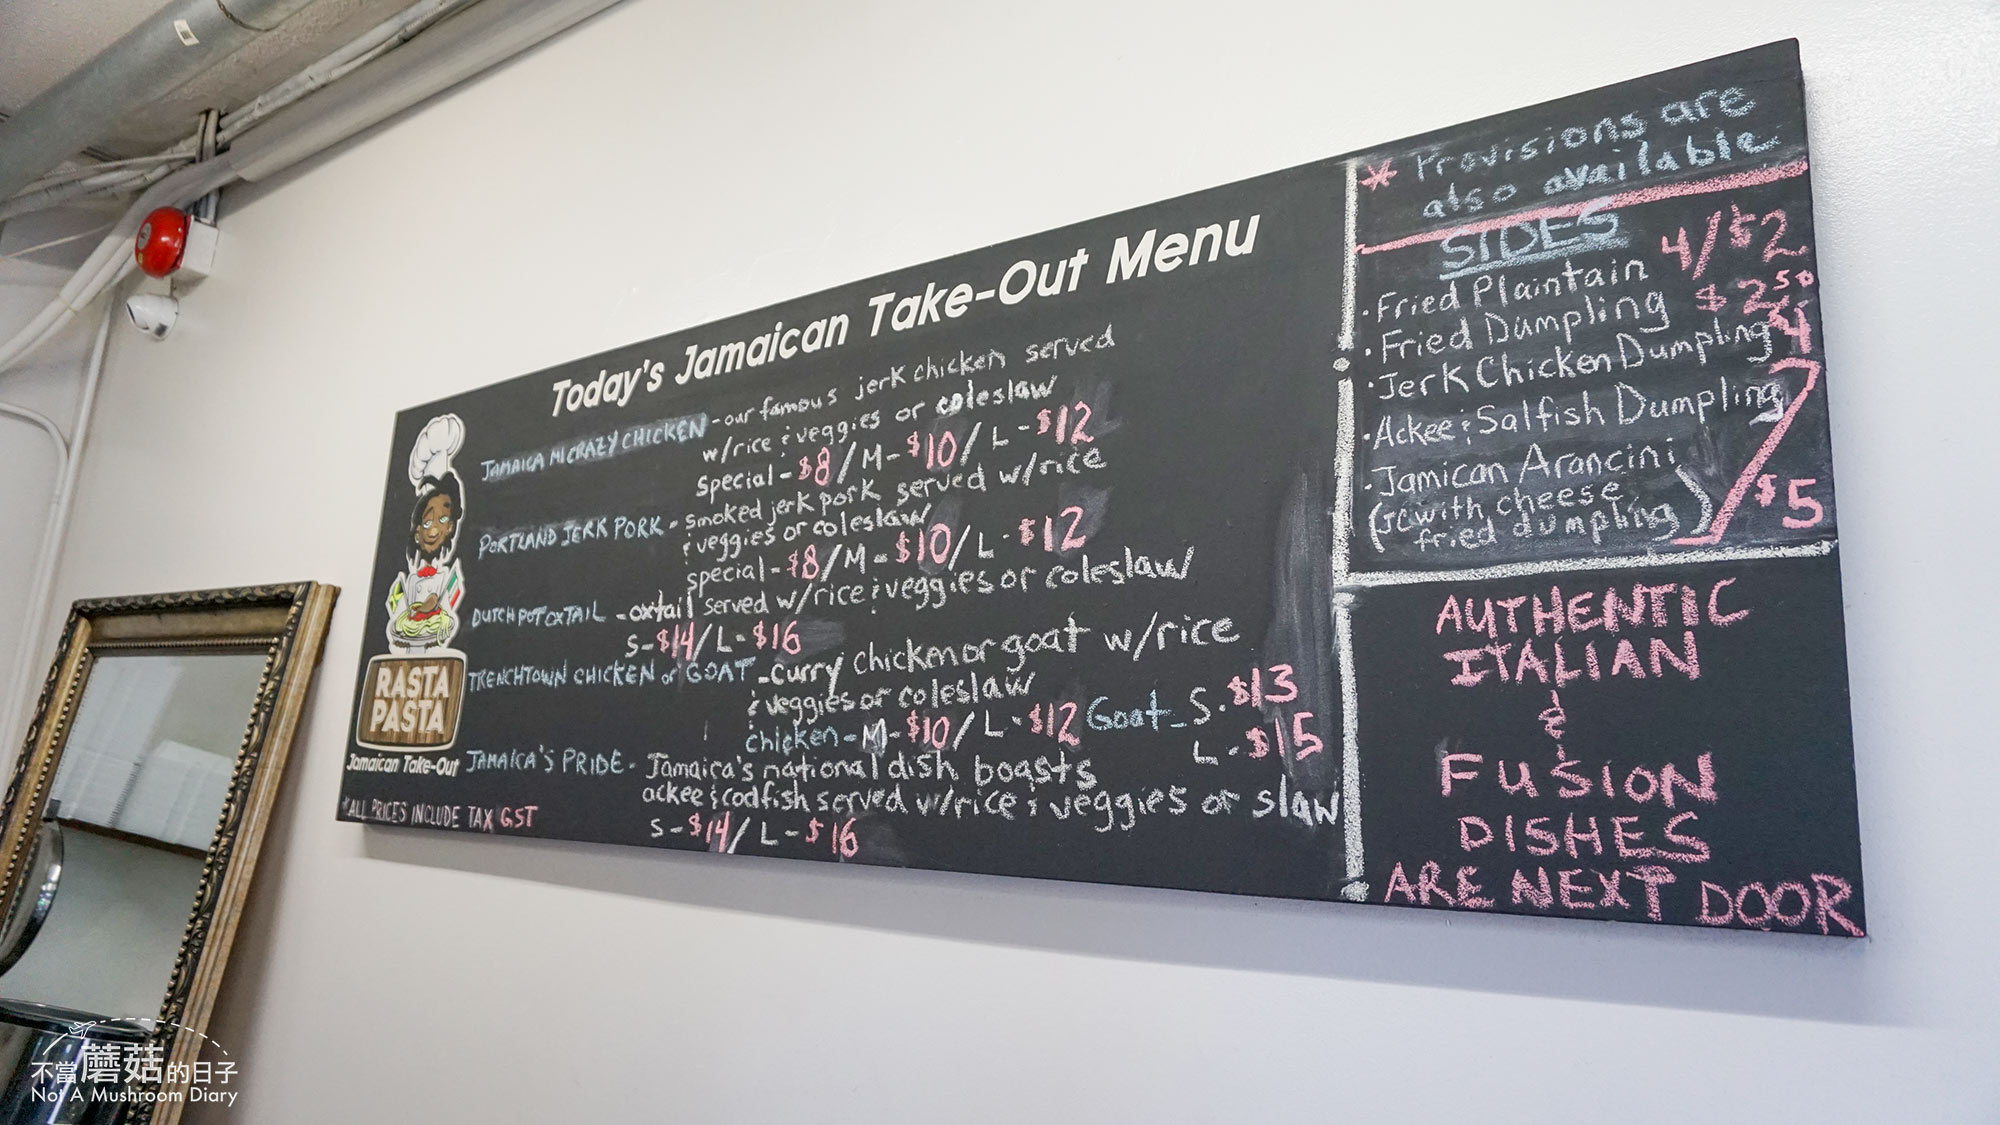 Today's Jamaican Take-Out Menu
JAMAICA MI CRAZY CHICKEN - our famous jerk chicken served
w/rice & veggies or coleslaw
special - $8 / M - $10 / L - $12
PORTLAND JERK PORK - smoked jerk pork served w/rice
& veggies or coleslaw
special - $8 / M - $10 / L - $12
DUTCH POT OXTAIL - oxtail served w/rice & veggies or coleslaw
S - $14 / L - $16
TRENCHTOWN CHICKEN or GOAT - curry chicken or goat w/rice
& veggies or coleslaw
chicken - M - $10 / L - $12 Goat - S - $13
L - $15
JAMAICA'S PRIDE - Jamaica's national dish boasts
ackee & codfish served w/rice & veggies or slaw
S - $14 / L - $16
RASTA
PASTA
Jamaican Take-Out
*ALL PRICES INCLUDE TAX GST
* Provisions are
also available
SIDES
· Fried Plaintain 4/$2
· Fried Dumpling $2.50
· Jerk Chicken Dumpling $4
· Ackee & Salfish Dumpling
· Jamican Arancini
(JC with cheese
fried dumpling) $5
AUTHENTIC
ITALIAN
&
FUSION
DISHES
ARE NEXT DOOR
不當蘑菇的日子
Not A Mushroom Diary